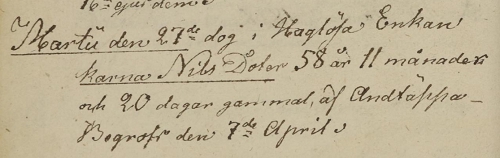 16 ejusdem.
Martii den 27de dog i Haglösa Enkan
Karna Nils Doter 58 år 11 månader
och 20 dagar gammal, af Andtäppa
Begrofs den 7de April.